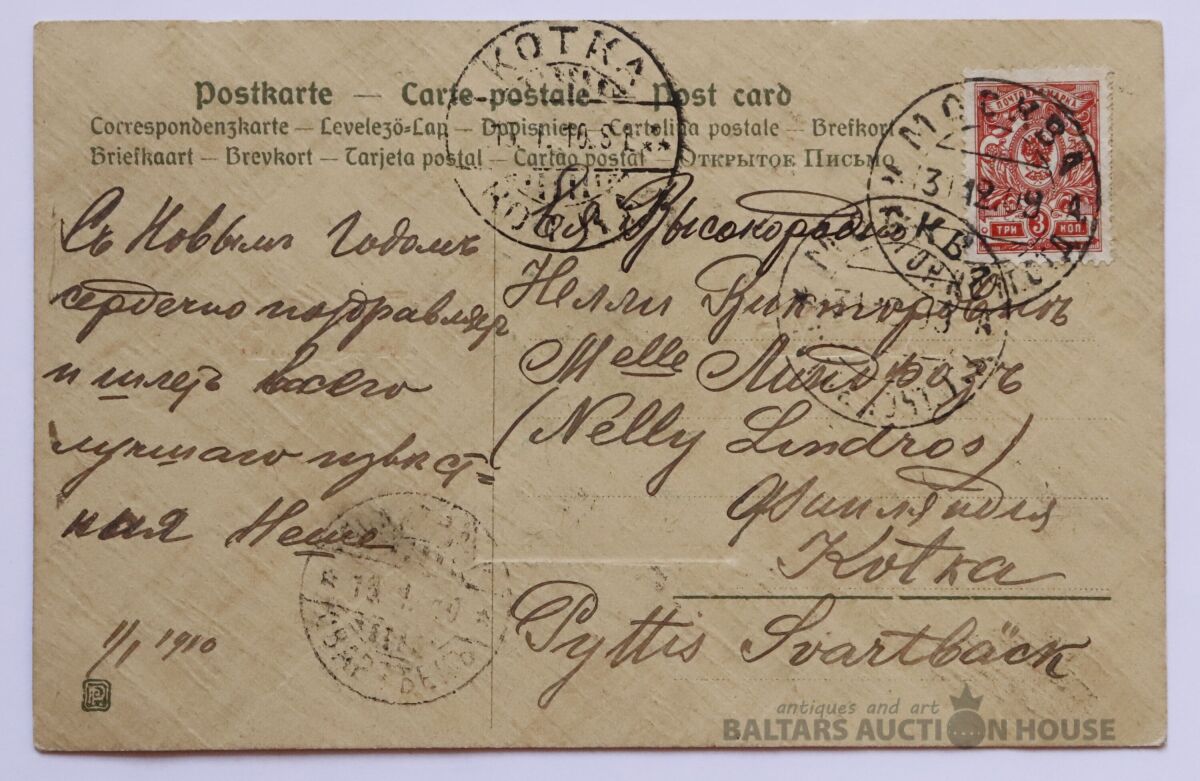 Postkarte — Carte postale — Post card
Correspondenzkarte — Levelező-Lap — Dopisnice — Cartolina postale — Brefkort
Briefkaart — Brevkort — Tarjeta postal — Cartao postal — Открытое Письмо
KOTKA
13.1.10. 9 L **
КОТКА
МОСКВА
31 12 09
ПОЧТОВАЯ МАРКА
ТРИ 3 КОП
Съ Новымъ Годомъ
сердечно поздравляет
и шлетъ всего
лучшаго извѣст-
ная Неше
1/1 1910
Ея Высокородію
Нелли Викторовнѣ
Melle Линдрозъ
(Nelly Lindros)
Финляндія
Kotka
Pyttis Svartbäck
* 13. 1. 10 *
antiques and art
BALTARS AUCTION HOUSE